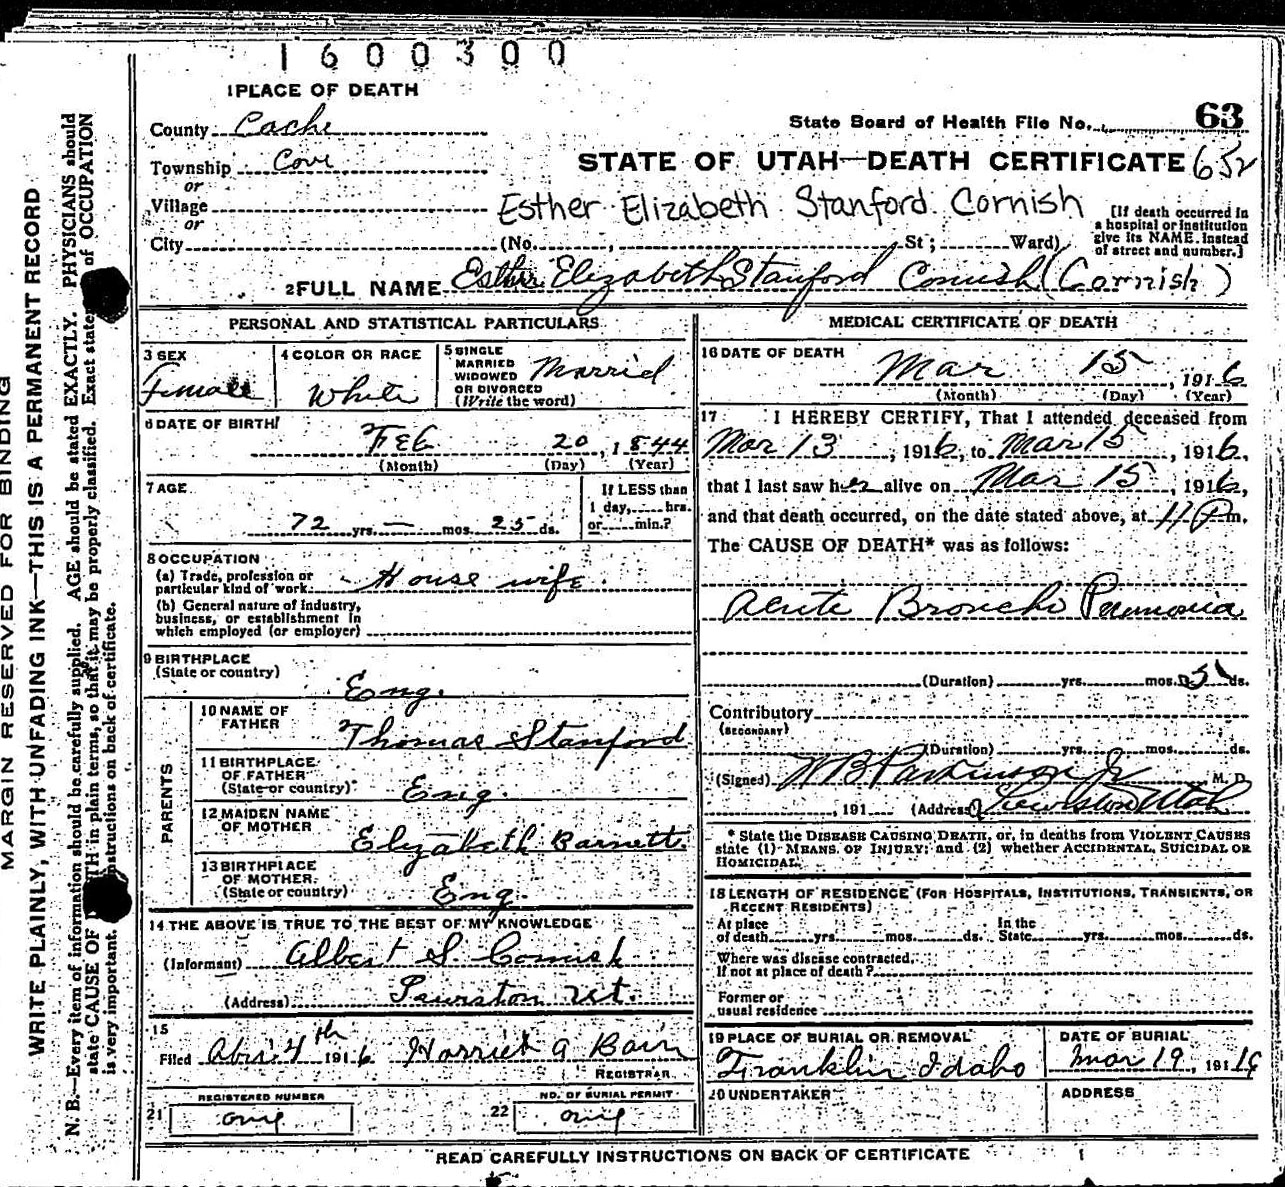 1600300
1 PLACE OF DEATH
County Cache
State Board of Health File No. 63
Township Cove
STATE OF UTAH—DEATH CERTIFICATE 652
or
Village
Esther Elizabeth Stanford Cornish
or
City (No. , St; Ward)
[If death occurred in
a hospital or institution
give its NAME. instead
of street and number.]
2 FULL NAME Esther Elizabeth Stanford Cornish (Cornish)
PERSONAL AND STATISTICAL PARTICULARS
3 SEX
Female
4 COLOR OR RACE
White
5 SINGLE
MARRIED
WIDOWED
OR DIVORCED
(Write the word)
Married
6 DATE OF BIRTH
Feb 20, 1844
(Month) (Day) (Year)
7 AGE
72 yrs. — mos. 25 ds.
If LESS than
1 day, hrs.
or min.?
8 OCCUPATION
(a) Trade, profession or
particular kind of work. House wife
(b) General nature of industry,
business, or establishment in
which employed (or employer)
9 BIRTHPLACE
(State or country)
Eng.
PARENTS
10 NAME OF
FATHER
Thomas Stanford
11 BIRTHPLACE
OF FATHER
(State or country)
Eng.
12 MAIDEN NAME
OF MOTHER
Elizabeth Barnett.
13 BIRTHPLACE
OF MOTHER.
(State or country)
Eng.
14 THE ABOVE IS TRUE TO THE BEST OF MY KNOWLEDGE
(Informant) Albert S. Cornish
(Address) Lewiston Ut.
15
Filed 4th 1916 Harriet A Bair
REGISTRAR
REGISTERED NUMBER
21 one
NO. OF BURIAL PERMIT
22 one
MEDICAL CERTIFICATE OF DEATH
16 DATE OF DEATH
Mar 15, 1916
(Month) (Day) (Year)
17 I HEREBY CERTIFY, That I attended deceased from
Mar 13, 1916, to Mar 15, 1916,
that I last saw her alive on Mar 15, 1916,
and that death occurred, on the date stated above, at 11 P m.
The CAUSE OF DEATH* was as follows:
Acute Broncho Pneumonia
(Duration) yrs. mos. 5 ds.
Contributory
(SECONDARY)
(Duration) yrs. mos. ds.
(Signed) W B Parkinson Jr M. D.
, 191 (Address) Lewiston Utah
* State the DISEASE CAUSING DEATH, or, in deaths from VIOLENT CAUSES
state (1) MEANS OF INJURY; and (2) whether ACCIDENTAL, SUICIDAL OR
HOMICIDAL.
18 LENGTH OF RESIDENCE (FOR HOSPITALS, INSTITUTIONS, TRANSIENTS, OR
RECENT RESIDENTS)
At place
of death yrs. mos. ds.
In the
State yrs. mos. ds.
Where was disease contracted.
If not at place of death?
Former or
usual residence
19 PLACE OF BURIAL OR REMOVAL
Franklin Idaho
DATE OF BURIAL
Mar 19, 191
20 UNDERTAKER
ADDRESS
READ CAREFULLY INSTRUCTIONS ON BACK OF CERTIFICATE
MARGIN RESERVED FOR BINDING
WRITE PLAINLY, WITH UNFADING INK—THIS IS A PERMANENT RECORD
N. B.—Every item of information should be carefully supplied. AGE should be stated EXACTLY. PHYSICIANS should
state CAUSE OF in plain terms, so that it may be properly classified. Exact of OCCUPATION
is very important. on back of certificate.